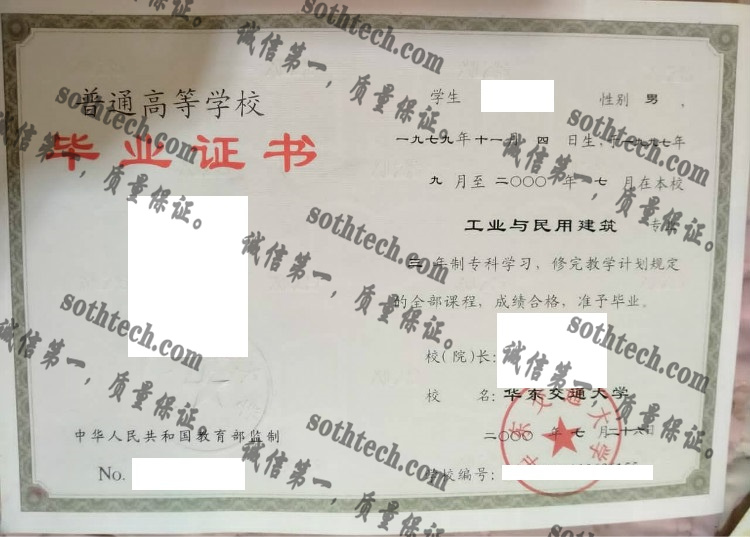 普通高等学校
毕业证书
中华人民共和国教育部监制
No.
学生 性别 男 ,
一九七九年十一月 四 日生,于一九九七年
九 月至 二〇〇〇 年 七 月在本校
工业与民用建筑 专业
三 年制专科学习,修完教学计划规定
的全部课程,成绩合格,准予毕业。
校(院)长:
校 名:华东交通大学
二〇〇〇 年 七 月二十六日
学校编号:
华东交通大学
sothtech.com
诚信第一,质量保证。
sothtech.com
诚信第一,质量保证。
sothtech.com
诚信第一,质量保证。
sothtech.com
诚信第一,质量保证。
sothtech.com
诚信第一,质量保证。
sothtech.com
诚信第一,质量保证。
sothtech.com
诚信第一,质量保证。